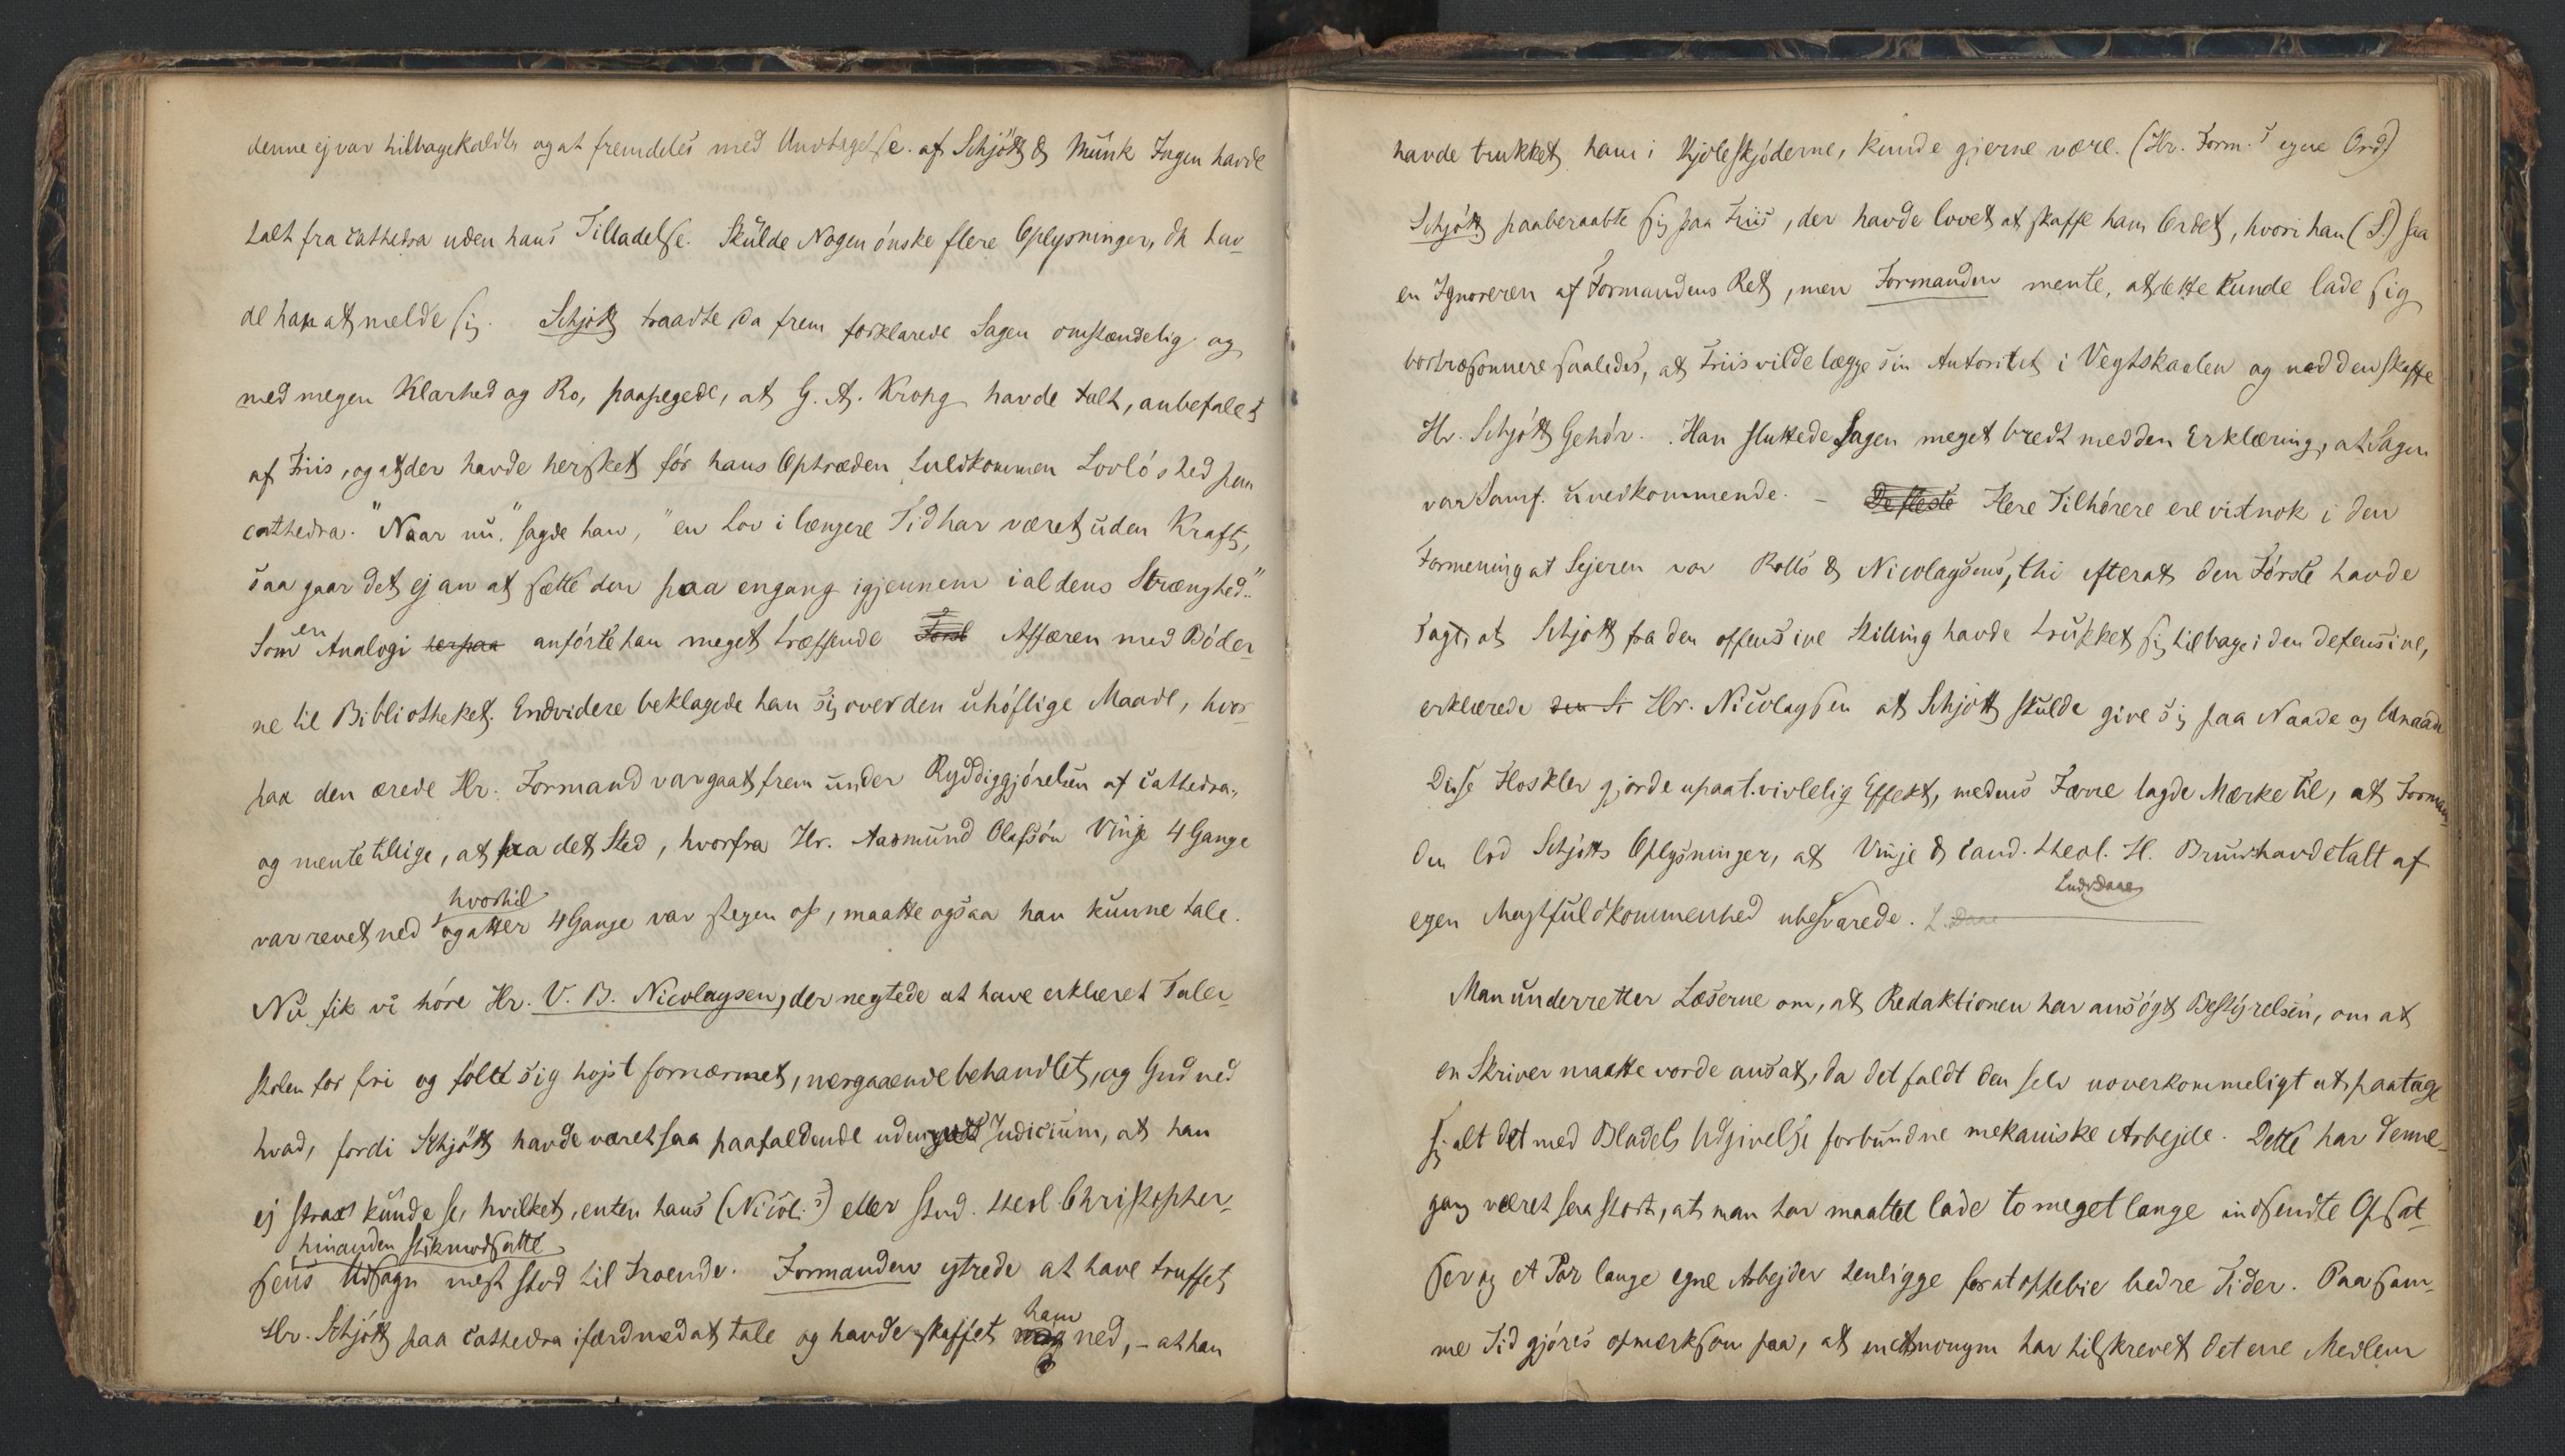 denne ej var tilbagekaldt, og at fremdeles med Undtagelse af Schjött & Munk Ingen havde
talt fra cathedra uden hans Tilladelse. Skulde Nogen ønske flere Oplysninger, da hav-
de han at melde sig. Schjøtt traadte da frem forklarede Sagen omstændelig og
med megen Klarhed og Ro, paapegede, at G. A. Krohg havde talt, anbefalet
af Friis, og at der havde hersket før hans Optræden fuldkommen Lovløshed paa
cathedra. "Naar nu," sagde han, "en Lov i længere Tid har været uden Kraft,
saa gaar det ej an at sætte den paa engang igjennem i al dens Strænghed."
Som en Analogi herpaa anførte han meget træffende Affæren med Bøder-
ne til Bibliotheket. Endvidere beklagede han sig over den uhøflige Maade, hvor-
paa den ærede Hr. Formand var gaaet frem under Ryddiggjørelsen af cathedra,
og mente tillige, at fra det Sted, hvorfra Hr. Aasmund Olafsøn Vinje 4 Gange
hvortil
var revet ned og atter 4 Gange var stegen op, maatte ogsaa han kunne tale.
Nu fik vi høre Hr. V. B. Nicolaysen, der negtede at have erklæret Taler-
stolen for fri og følte sig højst fornærmet, nærgaaende behandlet, og Gud ved
hvad, fordi Schjøtt havde været saa paafaldende uden godt Judicium, at han
ej strax kunde se, hvilket, enten hans (Nicol.s) eller stud. theol Christopher-
hinanden stikmodsatte
sens Udsagn mest stod til Troende. Formanden ytrede at have truffet
ham
Hr. Schjøtt paa cathedra ifærd med at tale og havde skaffet ned, - at han
havde trukket ham i Kjoleskjøderne, kunde gjerne være. (Hr. Form.s egne Ord)
Schjøtt paaberaabte sig paa Friis, der havde lovet at skaffe ham Ordet, hvori han (S.) saa
en Ignoreren af Formandens Ret, men Formanden mente, at dette kunde lade sig
bortræsonnere saaledes, at Friis vilde lægge sin Autoritet i Vegtskaalen og ved den skaffe
Hr. Schjøtt Gehør. Han sluttede Sagen meget bredt med den Erklæring, at Sagen
var Samf. uvedkommende. - De fleste Flere Tilhørere ere vistnok i den
Formening at Sejeren var Rolls & Nicolaysens, thi efterat den Første havde
sagt, at Schjøtt fra den offensive Stilling havde trukket sig tilbage i den defensive,
erklærede den Hr. Nicolaysen at Schjøtt skulde give sig paa Naade og Unaade
Disse Floskler gjorde upaatvivlelig Effekt, medens Færre lagde Mærke til, at Forman-
den lod Schjøtts Oplysninger, at Vinje & cand. theol. H. Bruun havde talt af
egen Magtfuldkommenhed ubesvarede. L. Daae
Ludv Daae
Man underretter Læserne om, at Redaktionen har ansøgt Bestyrelsen, om at
en Skriver maatte vorde ansat, da det faldt den selv uoverkommeligt at paatage
sig alt det med Bladets Udgivelse forbundne mekaniske Arbejde. Dette har denne-
gang været saa stort, at man har maattet lade to meget lange indsendte Opsat-
ser og et Par lange egne Arbejder henligge for at oppebie bedre Tider. Paa sam-
me Tid gjøres opmærksom paa, at en Anonym har tilskrevet det ene Medlem